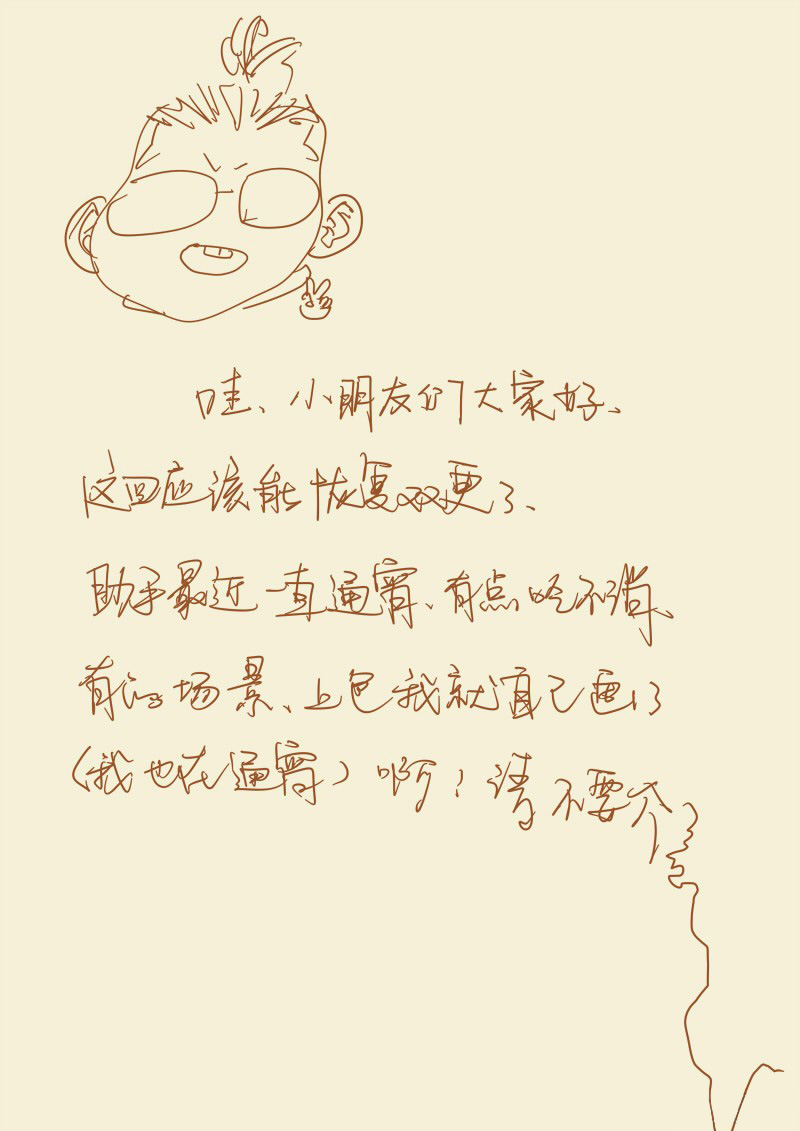 哇、小朋友们大家好、
这回应该能恢复双更了、
助手最近一直通宵、有点吃不消、
有的场景、上色我就自己画了
(我也在通宵)啊!请不要介